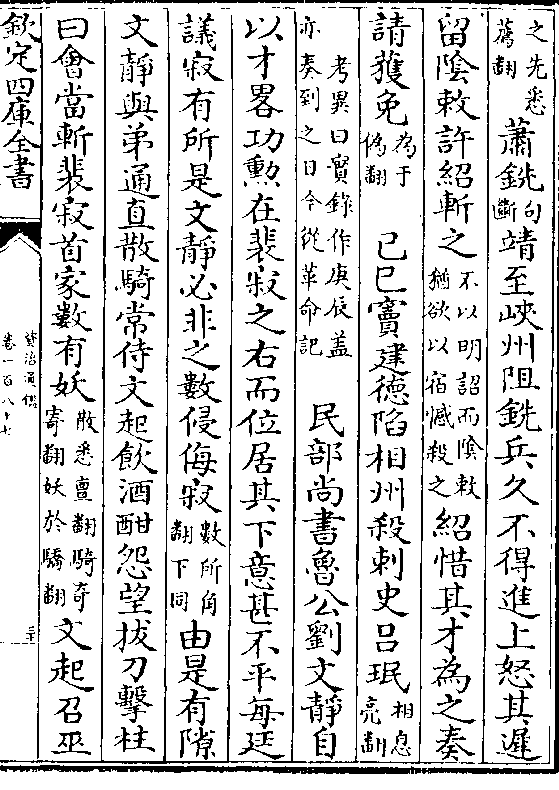 之先悉
薦翻
蕭銑
句
斷
靖至峽州阻銑兵久不得進上怒其遲
留陰敕許紹斬之
不以明詔而陰敕
猶欲以宿憾殺之
紹惜其才為之奏
請獲免
為于
偽翻
己巳竇建德陷相州殺刺史吕珉
相息
亮翻
考異曰實錄作庚辰蓋
亦奏到之日今從革命記
民部尚書魯公劉文靜自
以才畧功勲在裴寂之右而位居其下意甚不平每廷
議寂有所是文靜必非之數侵侮寂
數所角
翻下同
由是有隙
文靜與弟通直散騎常侍文起飲酒酣怨望拔刀擊柱
曰會當斬裴寂首家數有妖
散悉亶翻騎奇
寄翻妖於驕翻
文起召巫
欽定四庫全書
資治通鑑
卷一百八十七